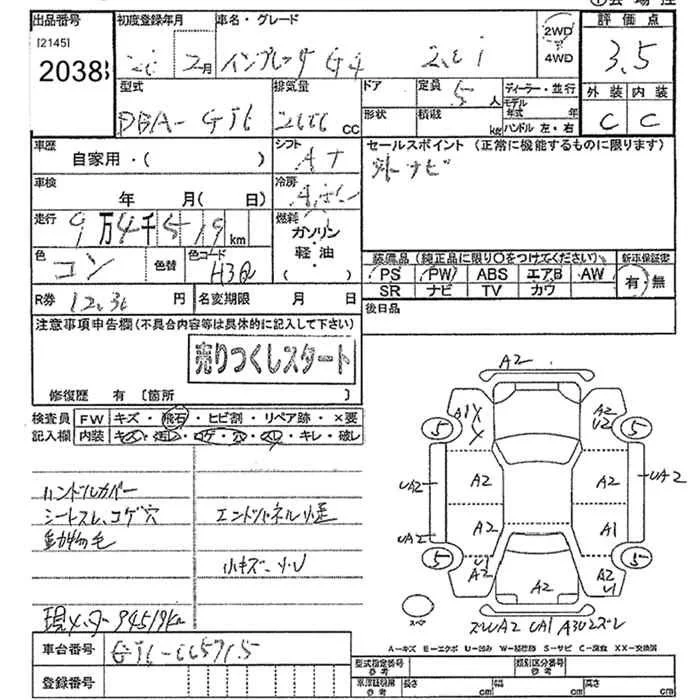 出品番号 初度登録年月 車名・グレード 評価点
[2145]
2038 2月 インプレッサ G4 2.0i 2WD 4WD 3.5
型式 排気量 ドア 定員 ディーラー・並行 外装 内装
DBA-GJ6 cc 5人 モデル年式 年 C C
形状 積載 kg ハンドル 左・右
車歴 自家用・( ) シフト AT セールスポイント (正常に機能するものに限ります)
車検 年 月( 日) 冷房 ナビ
走行 9万4千519km 燃料 ガソリン・軽油・( )
色 コン 色替 色コード H3Q 装備品(純正品に限り○をつけてください) 新車保証書
PS PW ABS エアB AW 有・無
SR ナビ TV カワ
R券 円 名変期限 月 日 後日品
注意事項申告欄(不具合内容等は具体的に記入して下さい)
売りつくしスタート
修復歴 有 [箇所 ]
検査員 FW キズ・飛石・ヒビ割・リペア跡・×要
記入欄 内装 キズ・汚レ・コゲ・穴・スレ・キレ・破レ
ハンドルカバー
シートスレ、コゲ穴 エンドパネル
動物毛
小キズ、
現メーター94519km
A2
A1 X X A2 U2
5 5
UA2 A2 A2 UA2
UA2 A2 A1
5 5
U1 A2 A2 A2 U1
スペア
UA1 A3U2
A=キズ E=エクボ U=凹み W=補修跡 S=サビ C=腐食 XX=交換済
車台番号
登録番号
型式指定番号 参考 類別区分番号 参考
長さ cm 幅 cm 高さ cm